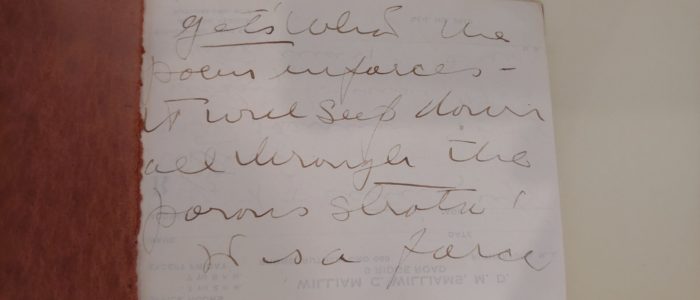 gets what the
poem enforces -
It will seep down
all through the
porous strata!
It is a force
WILLIAM C. WILLIAMS, M. D.
9 RIDGE ROAD